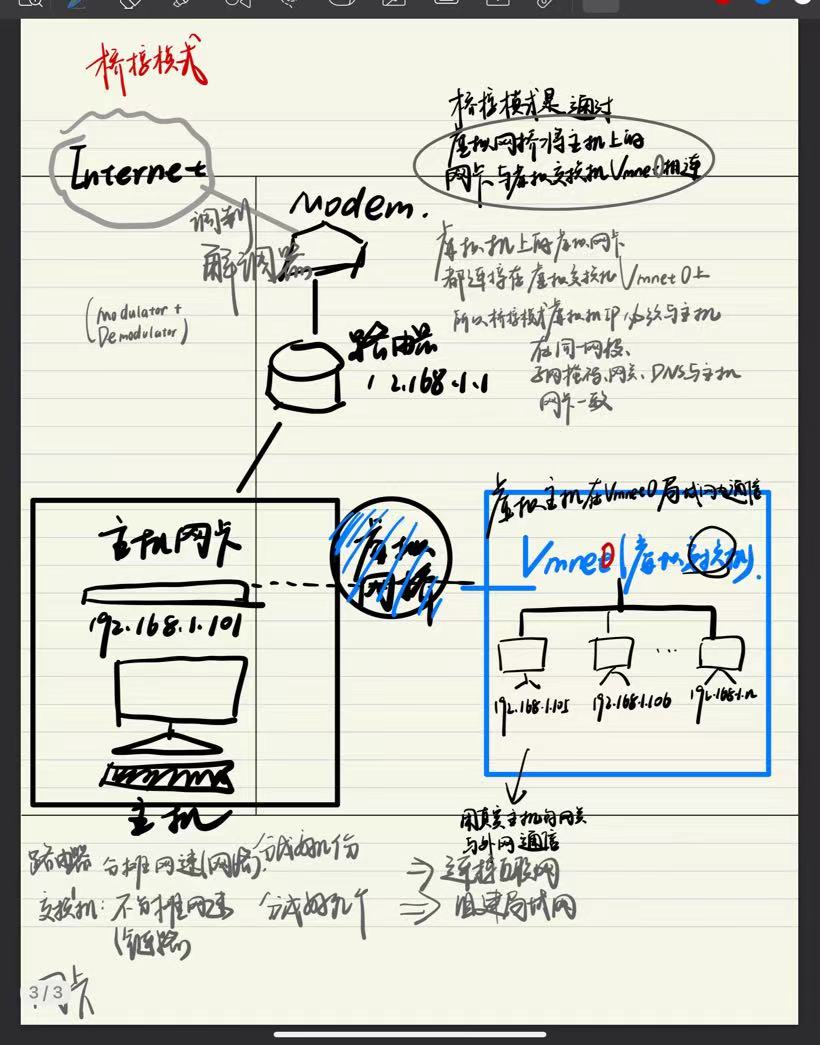 桥接模式
Internet
桥接模式是通过
虚拟网桥将主机上的
网卡与虚拟交换机Vmnet0相连
Modem.
调制
解调器
(modulator +
Demodulator)
虚拟机上的虚拟网卡
都连接在虚拟交换机Vmnet0上
所以桥接模式虚拟机IP必须与主机
在同一网段、
子网掩码、网关、DNS与主机
网卡一致
路由器
192.168.1.1
主机网卡
192.168.1.101
主机
虚拟
网桥
虚拟主机在Vmnet0局域网内通信
Vmnet0(虚拟交换机).
...
192.168.1.105
192.168.1.106
192.168.1.n
用真实主机的网关
与外网通信
路由器 分摊网速(网络). 分成好几份 ⇒ 连接互联网
交换机: 不分摊网速 分成好几个 ⇒ 组建局域网
(链路)
网卡
3/3